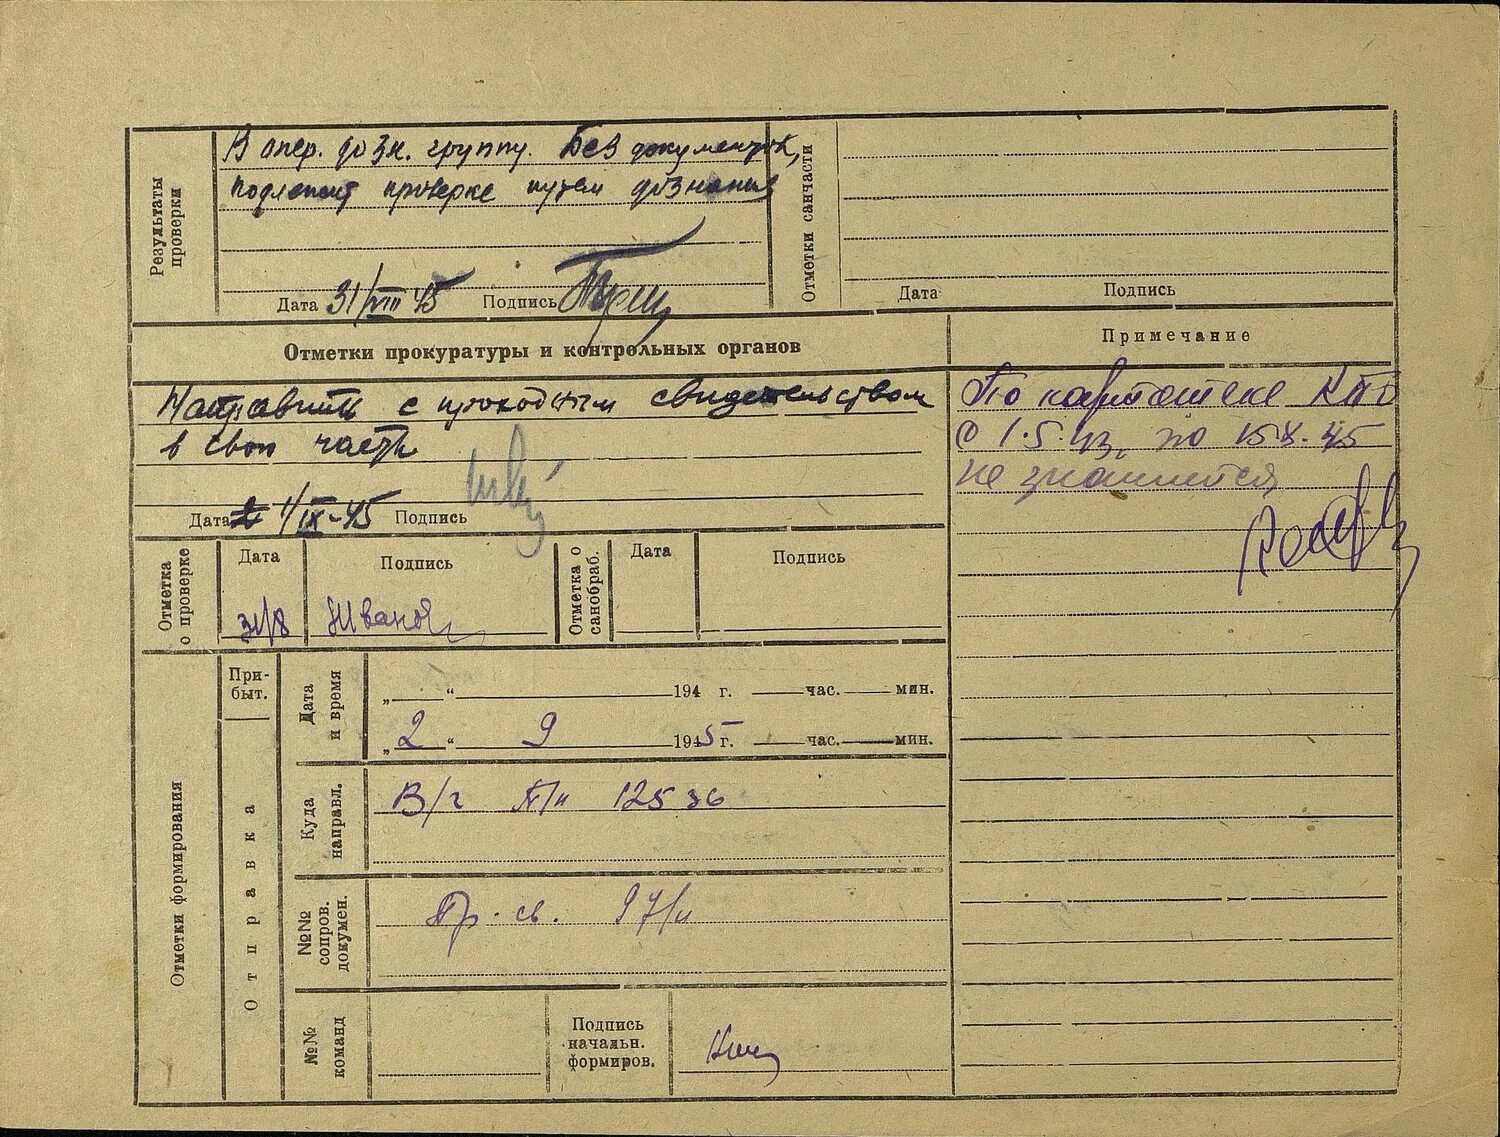 Результаты проверки
В опер. дозн. группу. Без документов,
подлежит проверке путем дознания
Дата 31/VIII 45 Подпись
Отметки санчасти
Дата Подпись
Отметки прокуратуры и контрольных органов
Направить с проходным свидетельством
в свою часть
Дата 1/IX-45 Подпись
Примечание
По картотеке
с 1.5.43 по 15.X.45
не значится
Отметка о проверке
Дата Подпись
31/8 Иванов
Отметка о санобраб.
Дата Подпись
Отметки формирования
Прибыт.
Отправка
Дата и время
„ “ 194 г. час. мин.
„ 2 “ 9 1945 г. час. мин.
Куда направл.
В/ч п/п 12536
№№ сопров. докумен.
Пр. св. 97/и
№№ команд
Подпись
начальн.
формиров.